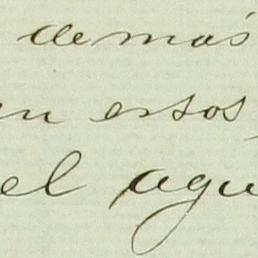 demás
en estos
el agu